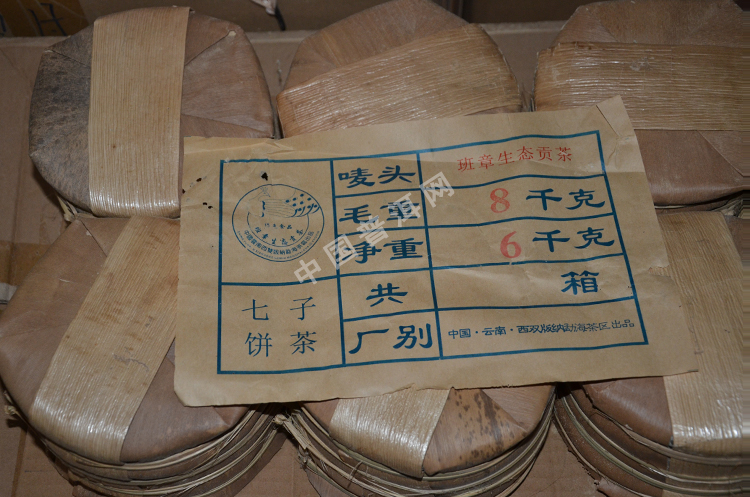 唛头
班章生态贡茶
毛重
8千克
净重
6千克
共
箱
七子
饼茶
厂别
中国·云南·西双版纳勐海茶区出品
班章生态贡茶
中国普洱网
H